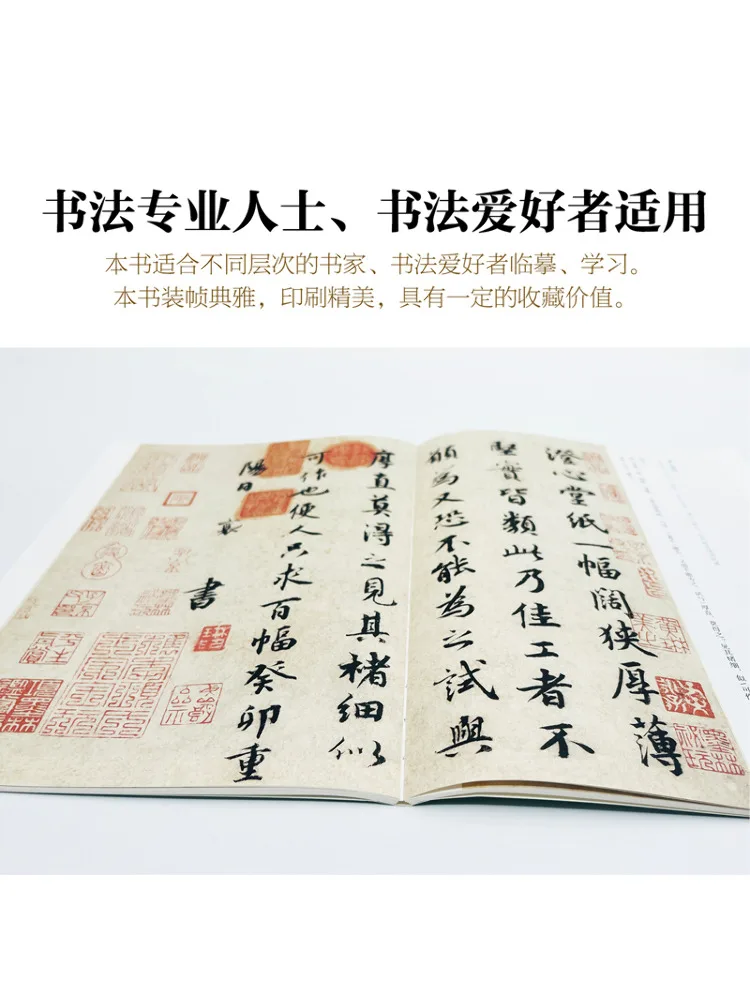 书法专业人士、书法爱好者适用
本书适合不同层次的书家、书法爱好者临摹、学习。
本书装帧典雅，印刷精美，具有一定的收藏价值。
澄心堂纸一幅阔狭厚薄
堅實皆類此乃佳工者不
願為又恐不能為之試與
厚直莫得之見其楮細似
可作也便人只求百幅癸卯重
陽日
襄
書